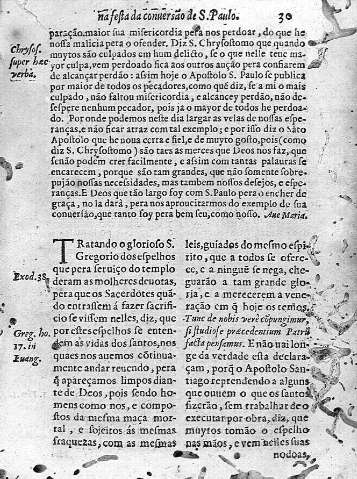 na festa da conuersão de S. Paulo. 30
paração, maior sua misericordia pera nos perdoar, do que he
nossa malicia pera o offender. Diz S. Chrysostomo que quando
muytos são culpados em hum delicto, se o que nelle tem a
mayor culpa, vem perdoado fica aos outros aução pera confiarem
de alcançar perdão: assim hoje o Apostolo S. Paulo se publica
por maior de todos os pecadores, como quē diz, se a mi o mais
culpado, não faltou misericordia, & alcancey perdão, não de-
sespere nenhum pecador, pois ja o mayor de todos he perdoa-
do. Por onde podemos neste dia largar as velas de nossas espe-
ranças, e não ficar atraz com tal exemplo; e por isso diz o Sāto
Apostolo que he noua certa e fiel, e de muyto gosto, pois (como
diz S. Chrysostomo) são tares as merces que Deos nos faz, que
senão podem crer facilmente, e assim com tantas palauras se
encarecem, porque são tam grandes, que não somente sobre-
pujão nossas necessidades, mam tambem nossos desejos, e espe-
ranças. E Deos que tão largo foy com S. Paulo pera o encher de
graça, no la dará, pera nos aproucitarmos do exemplo de sua
conuersão, que tanto foy pera bem seu, como nosso. Aue Maria.
Chrysos.
super hæc
verba.
TRatando o glorioso S.
Gregorio dos espelhos
que pera seruiço do templo
deram as molheres deuotas,
pera que os Sacerdotes quā-
do entrassem á fazer sacrifi-
cio se vissem nelles, diz, que
por estes espelhos se enten-
dem as vidas dos santos, nos
quaes nos auemos cōtinua-
mente andar reuendo, pera
q̄ apareçamos limpos dian-
te de Deos, pois sendo ho-
mens como nos, e compo-
stos da mesma maça mor-
tal, e sojeitos ás mesmas
fraquezas, com as mesmas
Exod. 38.
Greg. ho.
17. in
Euang.
leis, guiados do mesmo espi-
rito, que a todos se ofere-
ce, e a ninguē se nega, che-
guarão a tam grande glo-
ria, e a merecerem a vene-
ração em q̄ hoje os temos.
Tunc de nobis verè cōpungimur,
si studiosè præcedentium Patrū
facta pensemus. E não uai lon-
ge da verdade esta declara-
çam, porq̄ o Apostolo San-
tiago reprendendo a alguns
que ouuem o que os santos
fizerão, sem trabalhar de o
executar por obra, diz, que
muytos tomão o espelho
nas mãos, e vem nelles suas
nodoas,